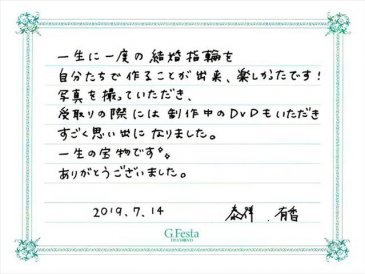 一生に一度の結婚指輪を
自分たちで作ることが出来、楽しかったです!
写真を撮っていただき、
受取りの際には制作中のDVDもいただき
すごく思い出になりました。
一生の宝物です。
ありがとうございました。
2019.7.14 泰祥 . 有香
G.Festa